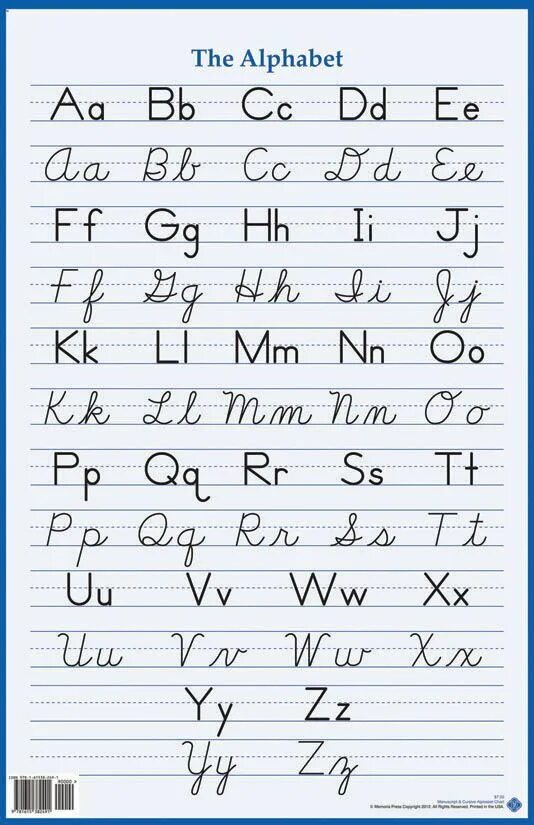 The Alphabet
Aa Bb Cc Dd Ee
Aa Bb Cc Dd Ee
Ff Gg Hh Ii Jj
Ff Gg Hh Ii Jj
Kk Ll Mm Nn Oo
Kk Ll Mm Nn Oo
Pp Qq Rr Ss Tt
Pp Qq Rr Ss Tt
Uu Vv Ww Xx
Uu Vv Ww Xx
Yy Zz
Yy Zz
90000 >
$7.00
Manuscript & Cursive Alphabet Chart
© Memoria Press Copyright 2012. All Rights Reserved. Printed in the USA.